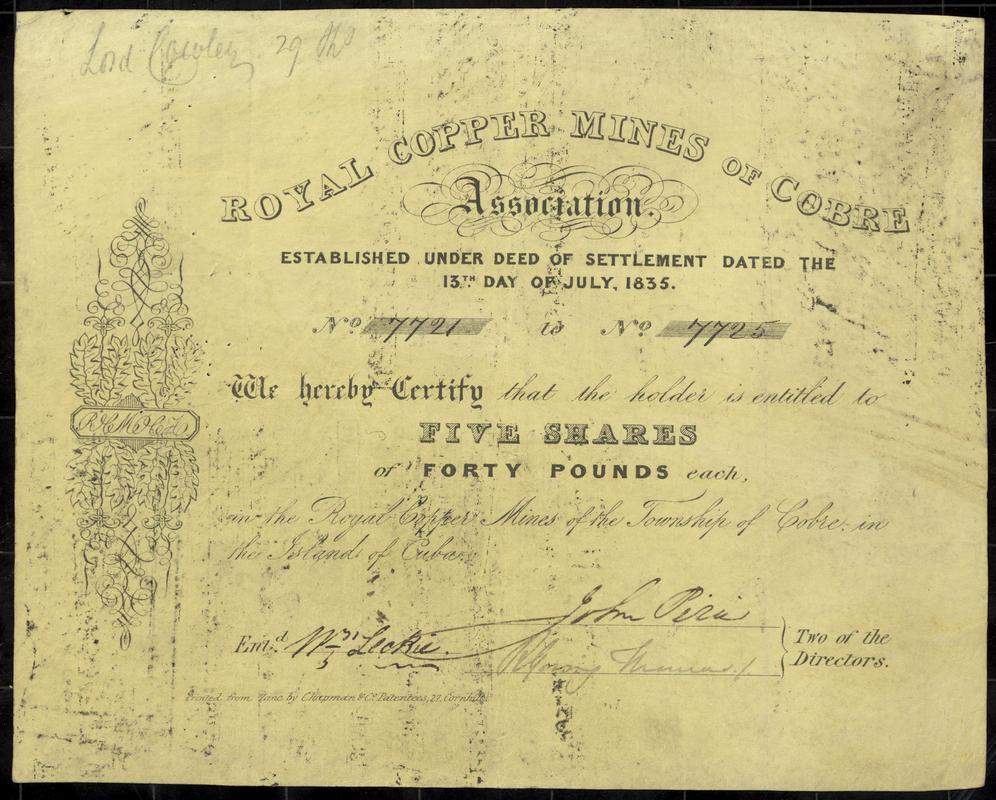 Lord Cowley 29
ROYAL COPPER MINES OF COBRE
Association.
ESTABLISHED UNDER DEED OF SETTLEMENT DATED THE
13TH DAY OF JULY, 1835.
No. 7721 to No. 7725
We hereby Certify that the holder is entitled to
FIVE SHARES
of FORTY POUNDS each,
in the Royal Copper Mines of the Township of Cobre, in
the Island of Cuba.
John Pirie
Ent.d Wm Leckie.
Two of the
Directors.
Printed from Zinc by Chapman & Co. Patentees, 27, Cornhill